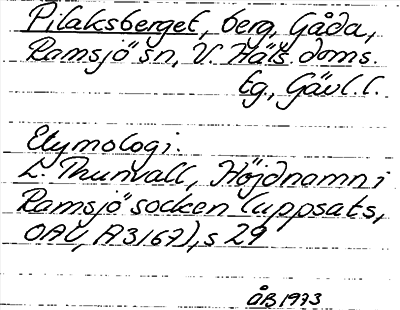 Pilaksberget, berg, Gåda,
Ramsjö sn, V. Häls. doms.
Eg., Gävl. l.
Etymologi:
L. Thunvall, Höjdnamn i
Ramsjö socken (uppsats,
OAU, A3167), s 29
ÅB 1973